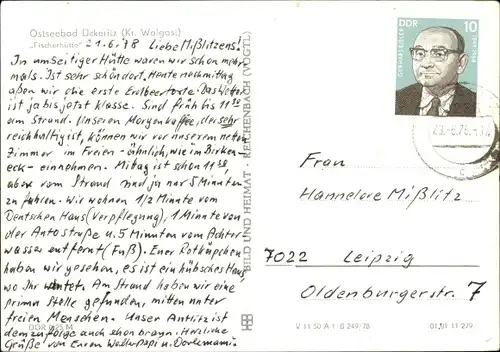 Ostseebad Ückeritz (Kr. Wolgast)
"Fischerhütte" 21.6.78 Liebe Mißlitzens!
In umseitiger Hütte waren wir schon mehr-
mals. Ist sehr schön dort. Heute nachmittag
aßen wir die erste Erdbeertorte. Das Wetter
ist ja bis jetzt klasse. Sind früh bis 11 30
am Strand. Unseren Morgenkaffee, der sehr
reichhaltig ist, können wir vor unserem netten
Zimmer im Freien - ähnlich, wie im Birken-
eck - einnehmen. Mittag ist schon 11 30,
aber vom Strand sind ja nur 5 Minuten
zu laufen. Wir wohnen 1/2 Minute vom
Deutschen Haus (Verpflegung), 1 Minute von
der Autostraße u. 5 Minuten vom Achter
wasser entfernt (Fuß). Euer Rotkäppchen
haben wir gesehen, es ist ein hübsches Haus,
wo Ihr wohntet. Am Strand haben wir eine
prima Stelle gefunden, mitten unter
freien Menschen. Unser Antlitz ist
demzufolge auch schon braun. Herzliche
Grüße von Euren Walter-papi u.
DDR 0,25 M
BILD UND HEIMAT · REICHENBACH (VOGTL)
DDR 10
GERHART EISLER
Frau
Hannelore Mißlitz
7022 Leipzig
Oldenburgerstr. 7
V 11 50 A 1 B 249/78 01 01 11 279